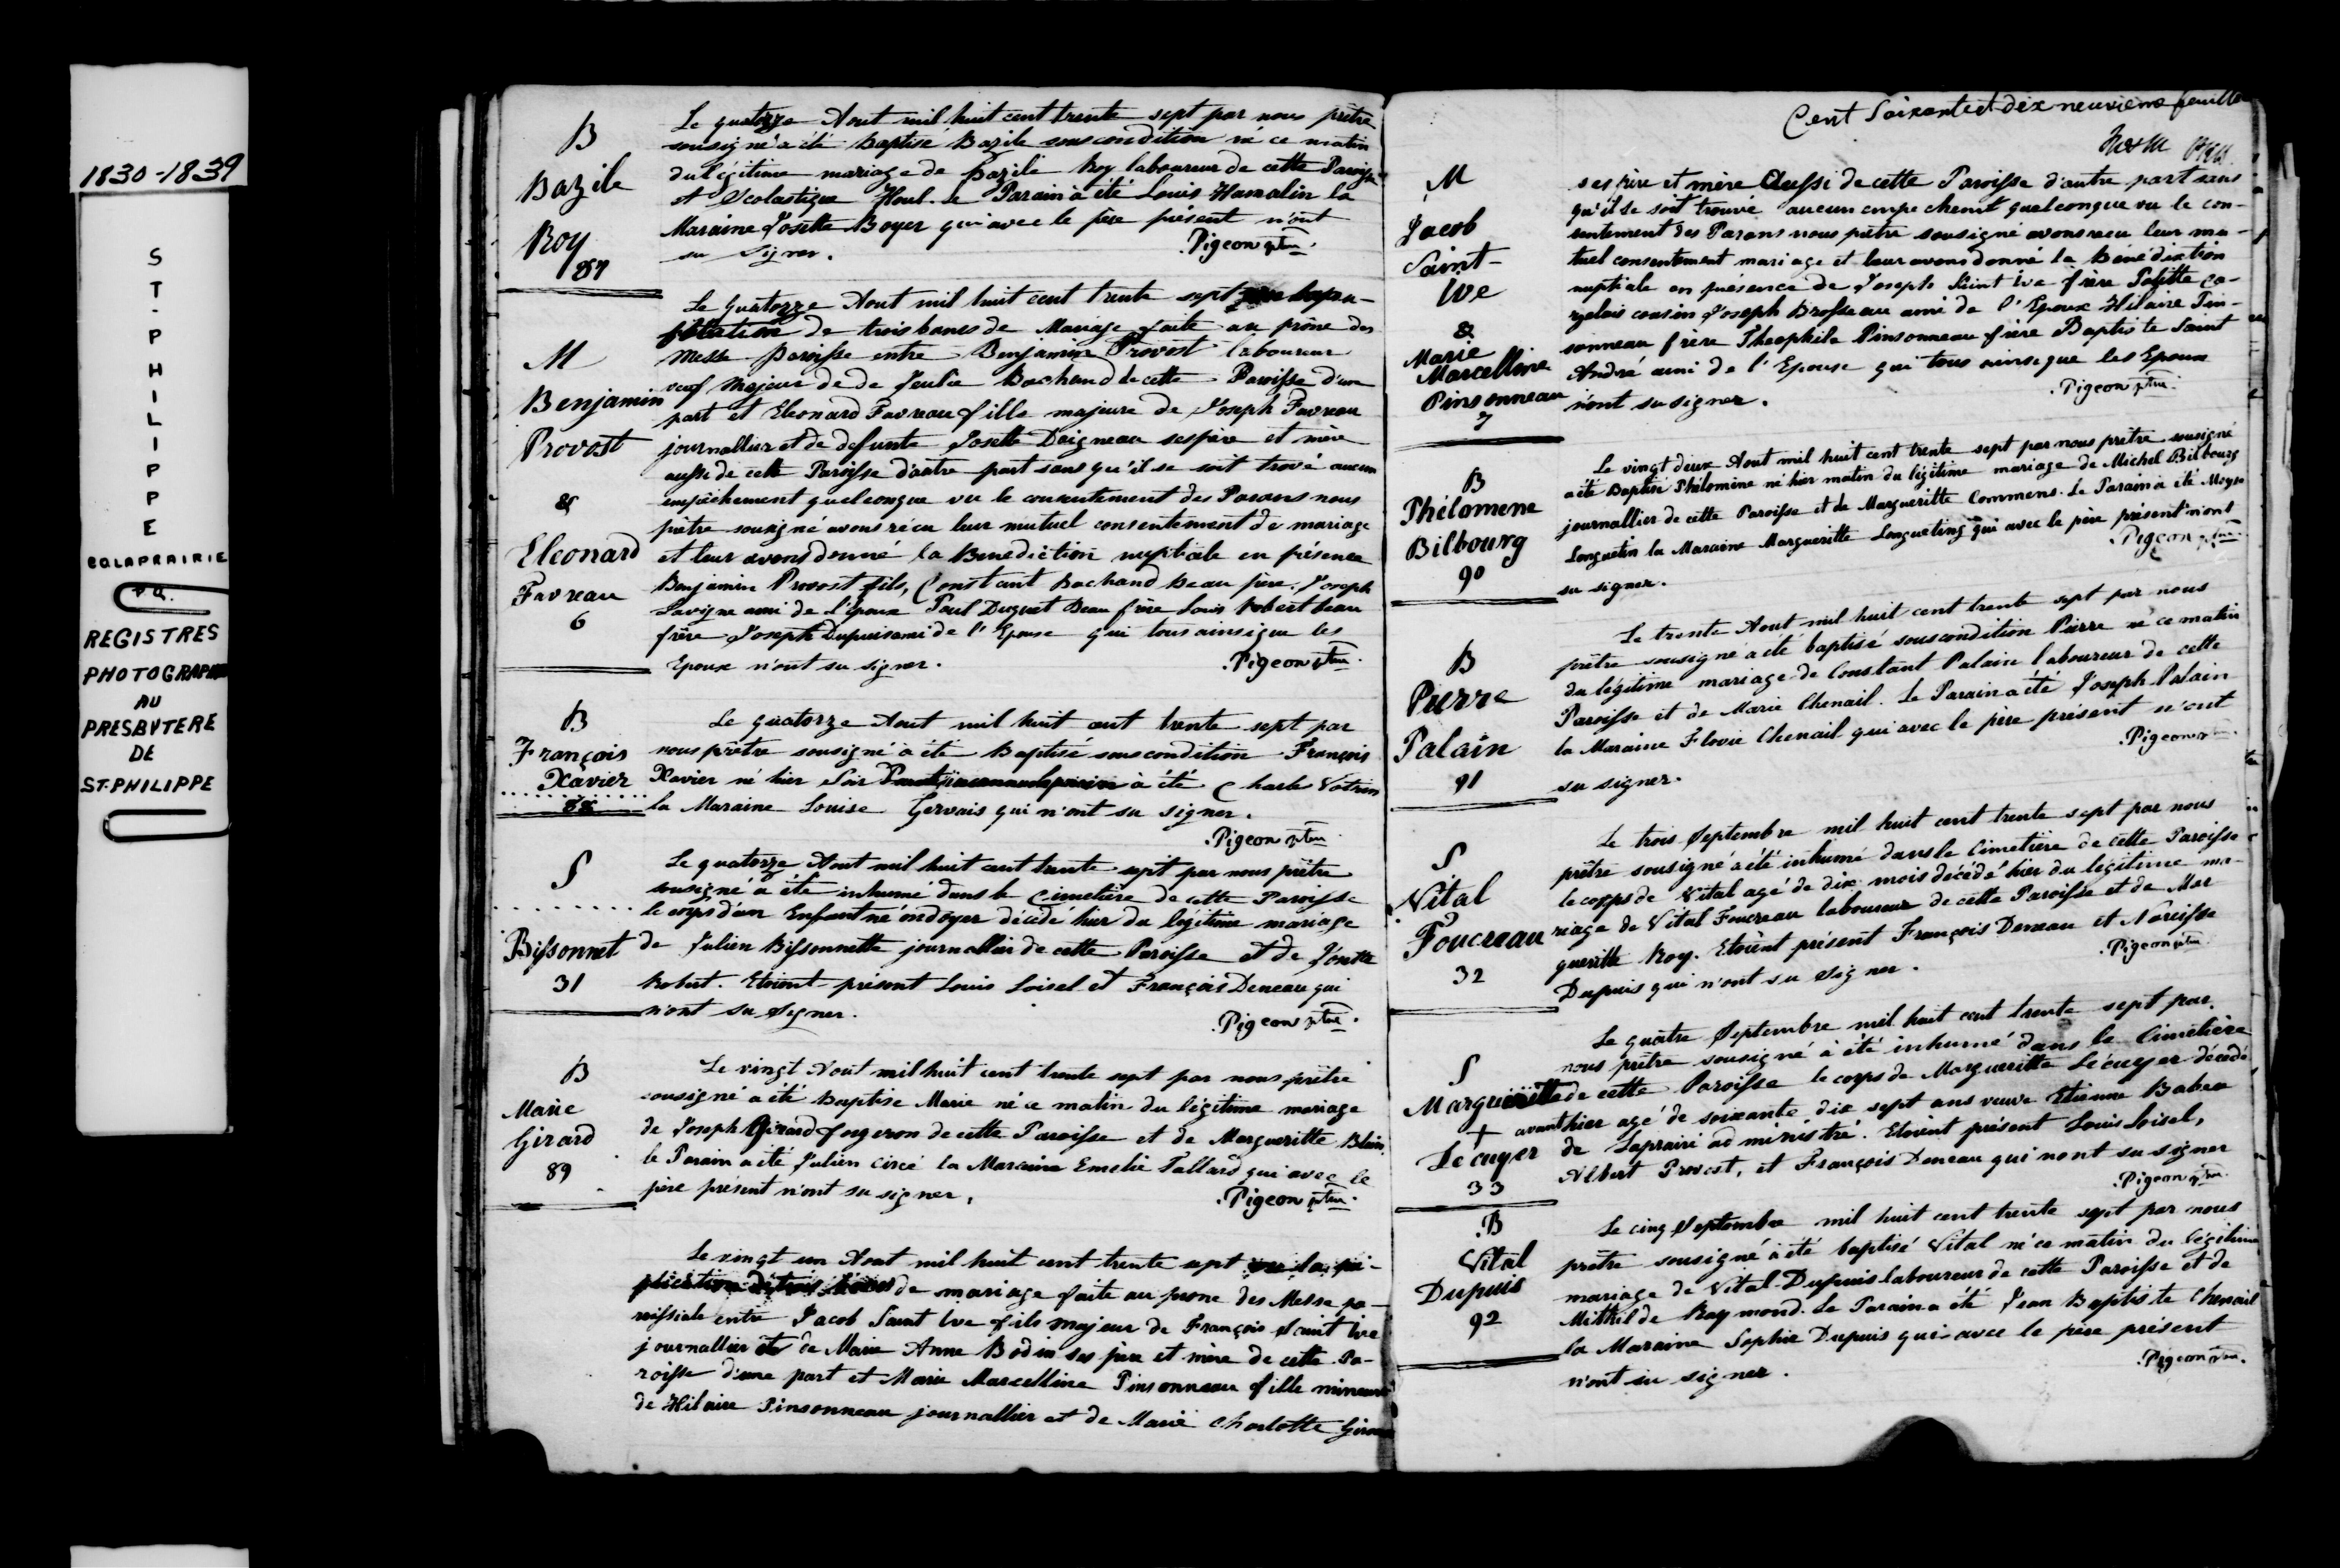 1830-1839
ST-PHILIPPE
COLAPRAIRIE
P.Q.
REGISTRES
PHOTOGRAPHIÉ
AU
PRESBYTERE
DE
ST-PHILIPPE
B
Bazile
Roy
87
Le quatorze Aout mil huit cent trente sept par nous prêtre
sousigné a été Baptisé Bazile sous condition né ce matin
du légitime mariage de Bazile Roy laboureur de cette Paroisse
et Scolastique Le Parain à été Louis Hamalin la
Maraine Josette Boyer qui avec le père présent n'ont
su signer.
Pigeon ptre
M
Benjamin
Provost
&
Eleonard
Favreau
6
Le Quatorze Aout mil huit cent trente sept
de trois bancs de Mariage faite au prône des
Messe Paroisse entre Benjamin Provost laboureur
veuf Majeur de de Julie Bachand de cette Paroisse d'une
part et Eleonard Favreau fille majeure de Joseph Favreau
journallier et de defunte Josette Daigneau ses père et mère
aussi de cette Paroisse d'autre part sans qu'il se soit trové aucun
empêchement quelconque vu le consentement des Parans nous
prêtre sousigné avons récu leur mutuel consentement de mariage
et leur avons donné la Benediction nuptiale en présence
Benjamin Provost fils, Constant Bachand beau père. Joseph
Lavigne ami de l'époux Paul Duquet Beau frère Louis Robert beau
frère Joseph Dupuis ami de l'Epouse qui tous ainsi que les
Epoux n'ont su signer.
Pigeon ptre
B
François
Xavier
88
Le quatorze Aout mil huit cent trente sept par
nous prêtre sousigné a été Baptisé sous condition François
Xavier né hier soir à été Charle
la Maraine Louise Gervais qui n'ont su signer.
Pigeon ptre
S
Bissonnet
31
Le quatorze Aout mil huit cent trente sept par nous prêtre
sousigné à été inhumé dans le Cimetière de cette Paroisse
le corps d'un Enfant né ondoyer décédé hier du légitime mariage
de Julien Bissonnette journallier de cette Paroisse et de Josette
Robert. Etoient présent Louis Loisel et François Deneau qui
n'ont su signer.
Pigeon ptre
B
Marie
Girard
89
Le vingt Aout mil huit cent trente sept par nous prêtre
sousigné a été Baptise Marie né ce matin du légitime mariage
de Joseph Girard forgeron de cette Paroisse et de Margueritte Blain
le Parain a été Julien Circé la Maraine Emelie Tallard qui avec le
père présent n'ont su signer,
Pigeon ptre
Le vingt un Aout mil huit cent trente sept
de mariage faite au prone des Messe pa-
roissiale entre Jacob Saint Ive fils majeur de François Saint Ive
journallier et de Marie Anne Bodin ses père et mère de cette Pa-
roisse d'une part et Marie Marcelline Pinsonneau fille mineure
de Hilaire Pinsonneau journallier et de Marie Charlotte
Cent Soixante et dix neuvieme feuille
M
Jacob
Saint-
Ive
&
Marie
Marcelline
Pinsonneau
7
ses père et mère Aussi de cette Paroisse d'autre part sans
qu'il se soit trouvé aucun empechemt quelconque vu le con-
sentement des Parans nous prêtre sousigné avons recu leur mu-
tuel consentement mariage et leur avons donné la Bénédiction
nuptiale en présence de Joseph Saint Ive frère Politte Ca-
zelais cousin Joseph Brosseau ami de l'Epoux Hilaire Pin-
sonneau frère Theophile Pinsonneau frère Baptiste Saint
André ami de l'Epouse qui tous ainsi que les Epoux
n'ont su signer.
Pigeon ptre
B
Phélomene
Bilbourg
90
Le vingt deux Aout mil huit cent trente sept par nous prêtre sousigné
a été Baptisé Philomine né hier matin du légitime mariage de Michel Bilbourg
journallier de cette Paroisse et de Margueritte Commens. Le Parain à été Moyse
Longuetin la Maraine Margueritte Longueting qui avec le père présent n'ont
su signer.
Pigeon ptre
B
Pierre
Palain
91
Le trente Aout mil huit cent trente sept par nous
prêtre sousigné a été baptisé sous condition Pierre né ce matin
du légitime mariage de Constant Palain laboureur de cette
Paroisse et de Marie Chenail. Le Parain a été Joseph Palain
la Maraine Flovie Chenail qui avec le père présent n'ont
su signer.
Pigeon ptre
S
Vital
Foucreau
32
Le trois Septembre mil huit cent trente sept par nous
prêtre sousigné a été inhumé dans le Cimetiere de cette Paroisse
le corps de Vital agé de dix mois décédé hier du légitime ma-
riage de Vital Foucreau laboureur de cette Paroisse et de Mar
gueritte Roy. Etoient présent François Deneau et Narcisse
Dupuis qui n'ont su signer.
Pigeon ptre
S
Margueritte
+
Lecuyer
33
Le quatre Septembre mil huit cent trente sept par
nous prêtre sousigné à été inhumé dans le Cimétière
de cette Paroisse le corps de Margueritte Lécuyer décédé
avant hier agé de soixante dix sept ans veuve Etienne Babeu
de Laprairi administré. Etoient présent Louis Loisel,
Albert Provost, et François Deneau qui nont su signer
Pigeon ptre
B
Vital
Dupuis
92
Le cinq Septembre mil huit cent trente sept par nous
prêtre sousigné à été baptisé Vital né ce matin du légitime
mariage de Vital Dupuis laboureur de cette Paroisse et de
Mithilde Raymond. Le Parain a été Jean Baptiste Chenail
la Maraine Sophie Dupuis qui avec le père présent
n'ont su signer.
Pigeon ptre